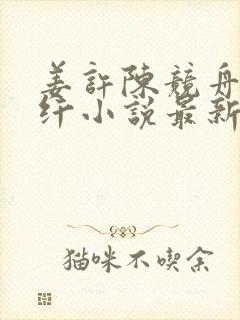 姜許陳競舟
纤小説最新
猫咪不喫余